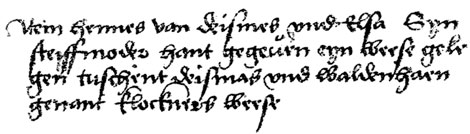 Item Hennes van Deismes vnd Elsa Syn
steiffmoder hant gegeuen eyn weese gele
gen tuschent Deismas vnd Waldenhaen
genant klockners weese